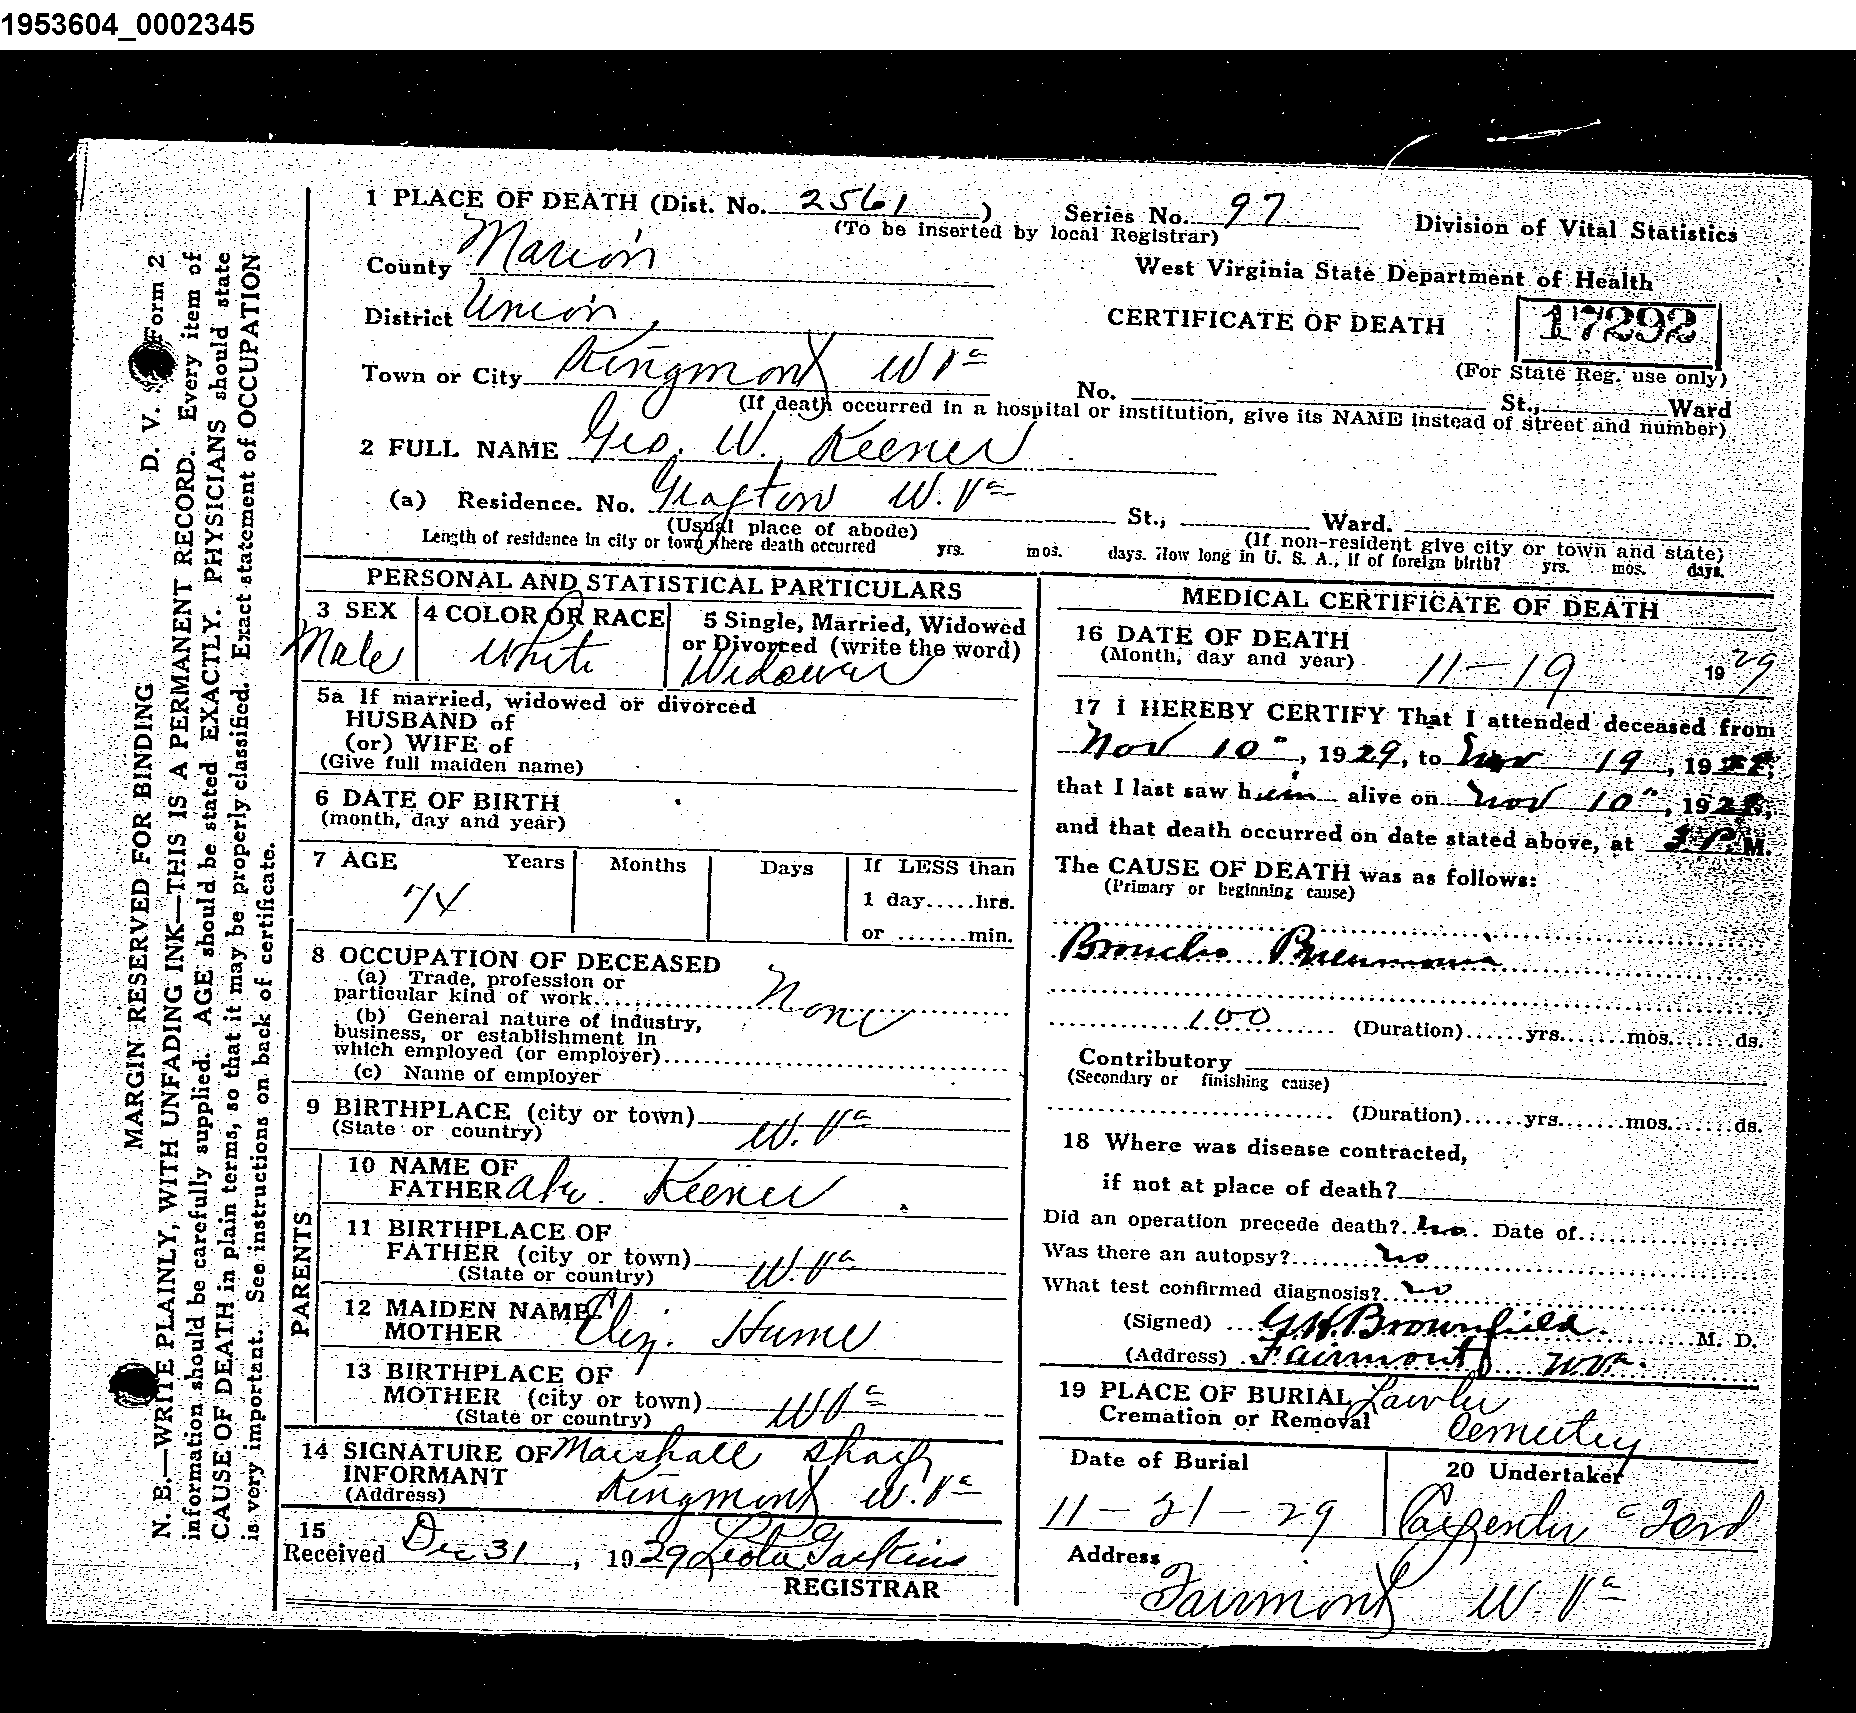 1953604_0002345
1 PLACE OF DEATH (Dist. No. 2561 ) Series No. 97 Division of Vital Statistics
(To be inserted by local Registrar)
County Marion West Virginia State Department of Health
District Union CERTIFICATE OF DEATH 17292
Town or City Kingmont W Va (For State Reg. use only)
No. St., Ward
(If death occurred in a hospital or institution, give its NAME instead of street and number)
2 FULL NAME Geo. W. Keener
(a) Residence. No. Grafton W. Va St., Ward.
(Usual place of abode) (If non-resident give city or town and state)
Length of residence in city or town where death occurred yrs. mos. days. How long in U. S. A., if of foreign birth? yrs. mos. days.
PERSONAL AND STATISTICAL PARTICULARS
3 SEX 4 COLOR OR RACE 5 Single, Married, Widowed
or Divorced (write the word)
Male White Widower
5a If married, widowed or divorced
HUSBAND of
(or) WIFE of
(Give full maiden name)
6 DATE OF BIRTH
(month, day and year)
7 AGE Years Months Days If LESS than
74 1 day.....hrs.
or .......min.
8 OCCUPATION OF DECEASED
(a) Trade, profession or
particular kind of work None
(b) General nature of industry,
business, or establishment in
which employed (or employer)
(c) Name of employer
9 BIRTHPLACE (city or town)
(State or country) W. Va
PARENTS
10 NAME OF
FATHER Abe. Keener
11 BIRTHPLACE OF
FATHER (city or town)
(State or country) W. Va
12 MAIDEN NAME
MOTHER Eliz. Hume
13 BIRTHPLACE OF
MOTHER (city or town)
(State or country) W Va
14 SIGNATURE OF Marshall
INFORMANT
(Address) Kingmont W. Va
15
Received Dec 31, 1929 Leota Gaskins
REGISTRAR
MEDICAL CERTIFICATE OF DEATH
16 DATE OF DEATH
(Month, day and year) 11-19 1929
17 I HEREBY CERTIFY That I attended deceased from
Nov 10", 1929, to Nov 19, 19
that I last saw him alive on Nov 10", 19
and that death occurred on date stated above, at M.
The CAUSE OF DEATH was as follows:
(Primary or beginning cause)
Broncho Pneumonia
100 (Duration)......yrs.......mos.......ds.
Contributory
(Secondary or finishing cause)
(Duration)......yrs.......mos.......ds.
18 Where was disease contracted,
if not at place of death?
Did an operation precede death? No Date of
Was there an autopsy? No
What test confirmed diagnosis? No
(Signed) G.H. Brownfield M. D.
(Address) Fairmont W.Va.
19 PLACE OF BURIAL Lawler
Cremation or Removal Cemetery
Date of Burial 20 Undertaker
11-21-29 Carpenter & Ford
Address
Fairmont W. Va
MARGIN RESERVED FOR BINDING D. V. S. Form 2
N. B.—WRITE PLAINLY, WITH UNFADING INK—THIS IS A PERMANENT RECORD. Every item of
information should be carefully supplied. AGE should be stated EXACTLY. PHYSICIANS should state
CAUSE OF DEATH in plain terms, so that it may be properly classified. Exact statement of OCCUPATION
is very important. See instructions on back of certificate.